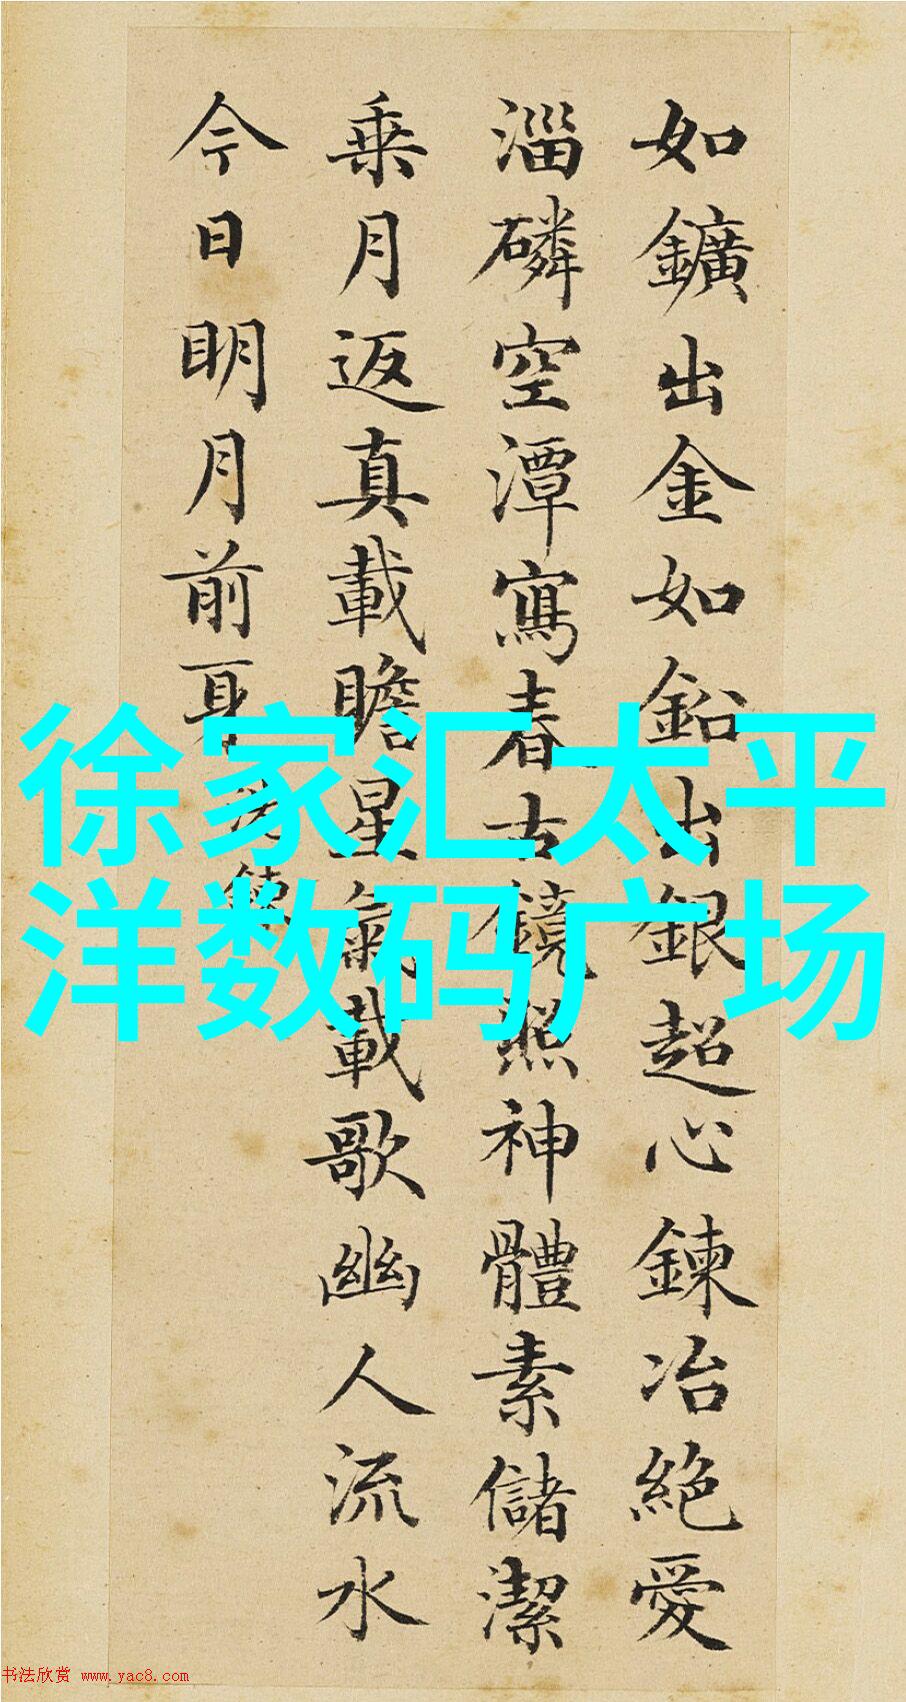 如鑛出金如鉛出銀超心鍊冶絕愛
淄磷空潭寫春古鏡照神體素儲潔
乘月返真載瞻星氣載歌幽人流水
今日明月前身
徐家汇太平
洋数码广场
书法欣赏 www.yac8.com